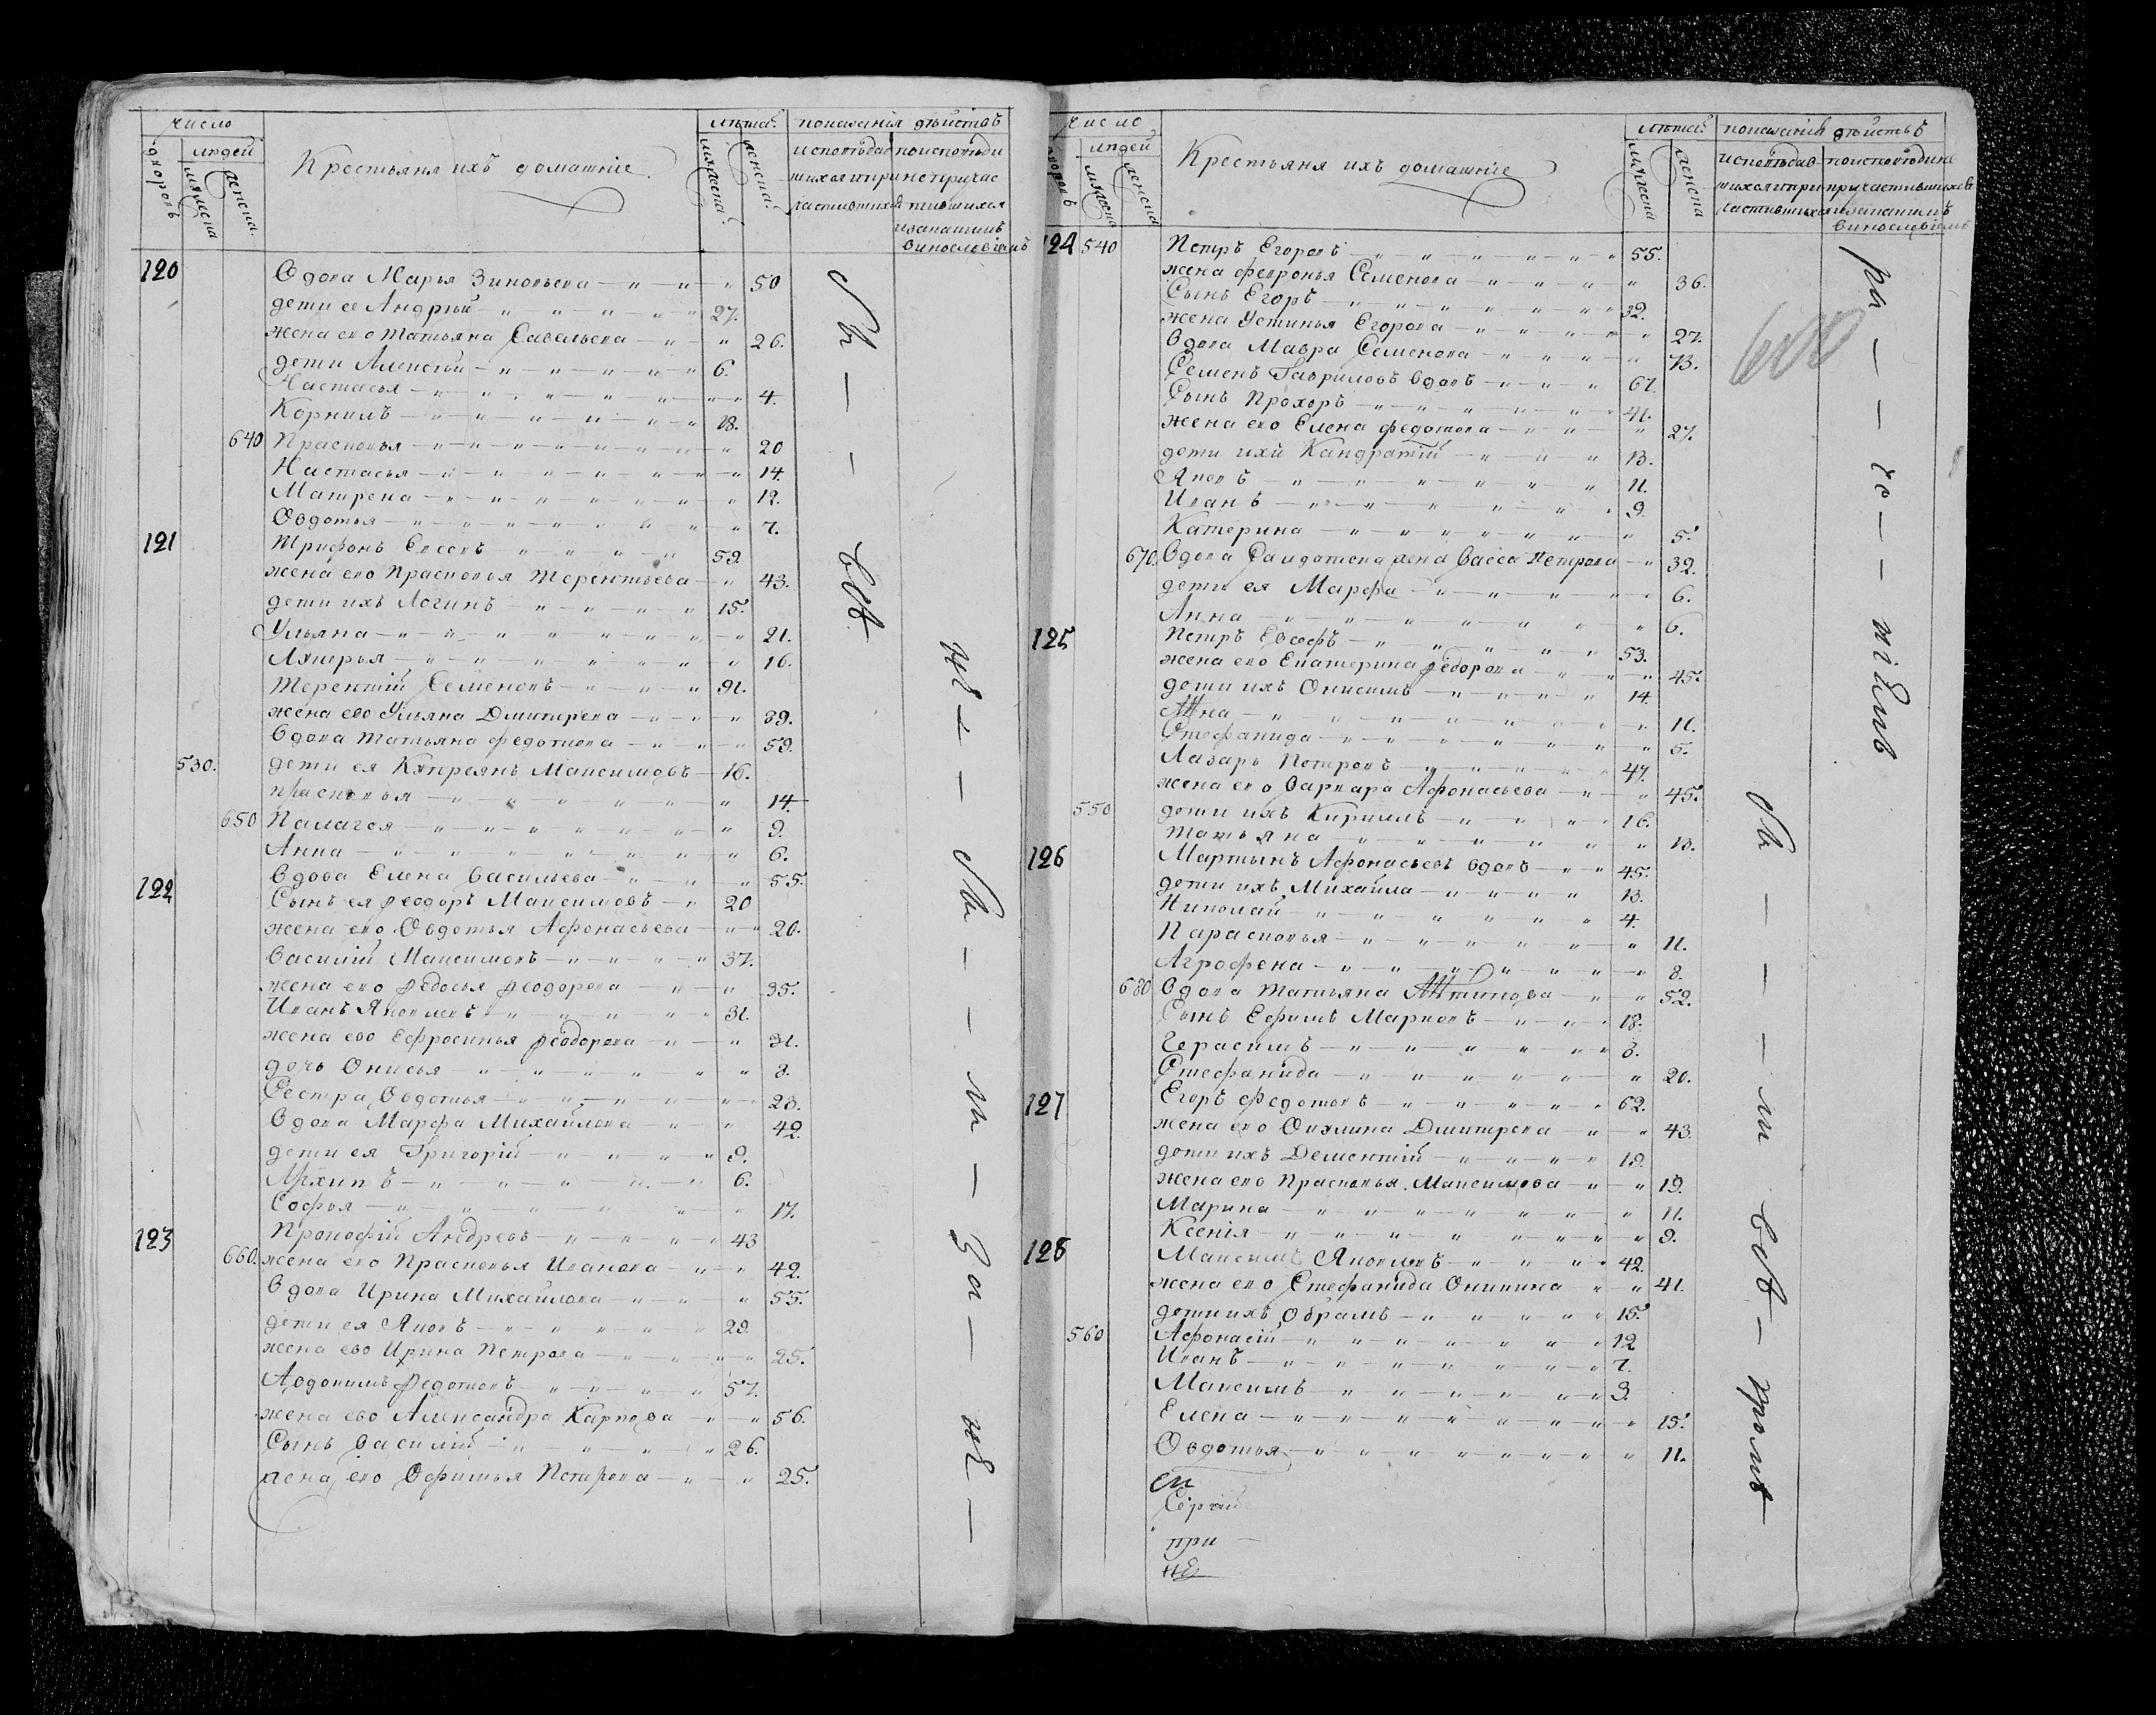 число
людей
дворовъ
мужеска
женска
Крестьяня ихъ домашніе
лѣта
мужеска
женска
показанія дѣйствъ
исповѣдав
шихся и при
частившихся
по исповѣди
не причас
тившихся
и за каким
винословіемъ
120
Вдова Марья Зиновьева 50
дети ее Андрѣй 27.
жена ево Татьяна Савельева 26.
дети Алексѣй 6.
Настасья 4.
Корнилъ 18.
640 Прасковья 20
Настасья 14.
Матрена 12.
Овдотья 7.
121
Трифонъ Евсевъ 59.
жена ево Прасковья Терентьева 43.
дети ихъ Логинъ 15.
Ульяна 21.
Лукерья 16.
Терентій Семеновъ 31.
жена ево Ульяна Дмитрева 39.
Вдова Татьяна Федотова 59.
530. дети ея Купреянъ Максимовъ 16.
прасковья 14.
650 Палагея 9.
Анна 6.
Вдова Елена Васильева 55.
122
Сынъ ея Феодоръ Максимовъ 20
жена ево Овдотья Афонасьева 20.
Василій Максимовъ 37.
жена ево Федосья Феодорова 35.
Иванъ Яковлевъ 31.
жена ево Ефросинья Феодорова 31.
дочь Онисья 8.
Сестра Овдотья 23.
Вдова Марфа Михайлова 42.
дети ея Григорій 9.
Архипъ 6.
Софья 17.
123
Прокофій Андревъ 43
660. жена ево Прасковья Иванова 42.
Вдова Ирина Михайлова 55.
дети ея Яковъ 29.
жена ево Ирина Петрова 25.
Авдокимъ Федотовъ 57.
жена ево Александра Карпова 56.
Сынъ Василій 26.
жена ево Офимья Петрова 25.
число
людей
дворовъ
мужеска
женска
Крестьяня ихъ домашніе
лѣта
мужеска
женска
показанія дѣйствъ
исповѣдав
шихся и при
частившихся
124 540 Петръ Егоровъ 55.
жена Февронья Семенова 36.
Сынъ Егоръ 32.
жена Устинья Егорова 27.
Вдова Мавра Семенова 73.
600
Семенъ Гавриловъ вдовъ 67.
Сынъ Прохоръ 41.
жена ево Елена Федотова 27.
дети ихъ Кандратій 13.
Яковъ 11.
Иванъ 9.
Катерина 5.
670. Вдова Салдатска жена Васса Петрова 32.
дети ея Марфа 6.
Анна 6.
125
Петръ Евсефъ 53.
жена ево Екатерина Феодорова 45.
дети ихъ Онисимъ 14.
Анна 11.
Стефанида 5.
Лазарь Петровъ 47.
жена ево Варвара Афонасьева 45.
550 дети ихъ Кирилъ 16.
Татьяна 13.
126
Мартынъ Афонасьевъ вдовъ 45.
дети ихъ Михайла 13.
Николай 4.
Парасковья 11.
Агрофена 8.
680 Вдова Татьяна 52.
Сынъ Ефимъ Марковъ 18.
Герасимъ 8.
Стефанида 20.
127
Егоръ Федотовъ 62.
жена ево Окулина Дмитрева 43.
дети ихъ Дементій 19.
жена ево Прасковья Максимова 19.
Марина 11.
Ксенія 9.
128
Максимъ Яковлевъ 42.
жена ево Стефанида Оникина 41.
дети ихъ Обрамъ 15.
560 Афонасій 12
Иванъ 7.
Максимъ 3.
Елена 15.
Овдотья 11.
при
не